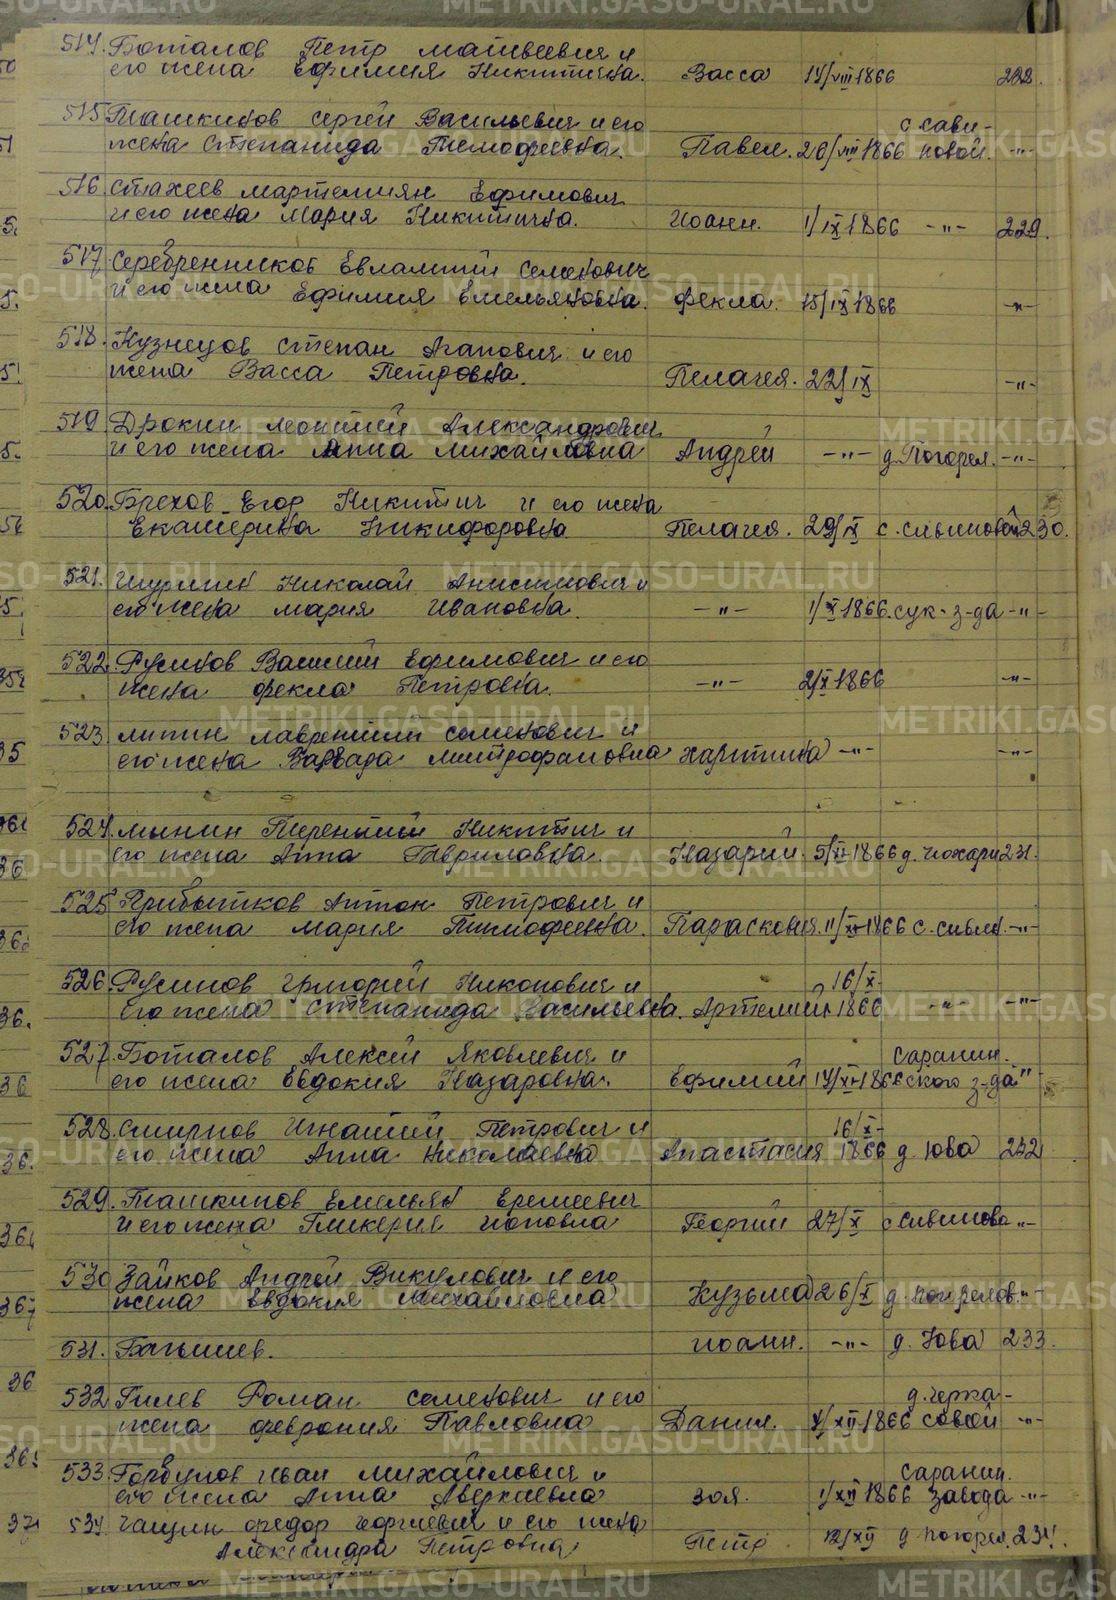 514. Боталов Петр Матвеевич и
его жена Ефимия Никитична. Васса 14/VIII 1866 228.
515 Ташкинов Сергей Васильевич и его с. Сави-
жена Степанида Тимофеевна. Павел. 20/VIII 1866 новой. -"-
516 Стахеев Мартемиян Ефимович
и его жена Мария Никитична. Иоанн. 1/IX 1866 -"- 229.
517 Серебренников Евлампий Семенович
и его жена Ефимия Емельяновна. Фекла. 15/IX 1866 -"-
518. Кузнецов Степан Агапович и его
жена Васса Петровна. Пелагея. 22/IX -"-
519 Дрокин Леонтий Александрович
и его жена Анна Михайловна Андрей -"- д. Погорел. -"-
520. Брехов Егор Никитич и его жена
Екатерина Никифоровна Пелагея. 29/IX с. 230.
521. Шурмин Николай Анисимович и
его жена Мария Ивановна. -"- 1/X 1866. сук. з-да -"-
522. Русинов Василий Ефимович и его
жена Фекла Петровна. -"- 2/X 1866 -"-
523 Липин Лаврентий Семенович и
его жена Варвара Митрофановна Харитина -"- -"-
524. Мынин Терентий Никитич и
его жена Анна Гавриловна. Назарий. 5/X 1866 д. 231.
525 Прибытков Антон Петрович и
его жена Мария Тимофеевна. Парасковия. 11/X 1866 с. -"-
526. Русинов Григорий Никонович и 16/X-
его жена Степанида Васильевна. Артемий 1866 -"- -"-
527. Боталов Алексей Яковлевич и Саранин.
его жена Евдокия Назаровна. Ефимий 14/X 1866 ского з-да "
528. Смирнов Игнатий Петрович и 16/X-
его жена Анна Николаевна Анастасия 1866 д. Юва 232
529. Ташкинов Емельян Еремеевич
и его жена Гликерия Иоповна Георгий 27/X с Савинова -"-
530 Зайков Андрей Викулович и его
жена Евдокия Михайловна Кузьма 26/X д. Погрелов. "-
531. Багышев. Иоанн. -"- д. Юва 233.
532 Гилев Роман Семенович и его д. Черка-
жена Феврония Павловна Данил. XII 1866 совой -"-
533. Горбунов Иван Михайлович и Саранин.
его жена Анна Аверкиевна Зоя. 1/XII 1866 завода -"-
534. Чащин Федор Георгиевич и его жена
Александра Петровна Петр. 12/XII д Погорел. 234.
METRIKI.GASO-URAL.RU